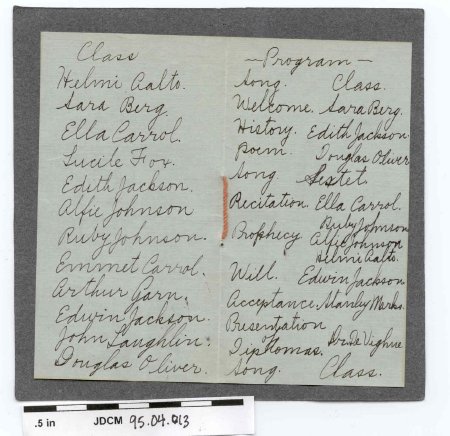 Class
Helmi Aalto.
Sara Berg.
Ella Carrol.
Lucile Fox.
Edith Jackson.
Alfie Johnson
Ruby Johnson.
Emmet Carrol.
Arthur Garn.
Edwin Jackson.
John Laughlin.
Douglas Oliver.
— Program —
Song. Class.
Welcome. Sara Berg.
History. Edith Jackson.
Poem. Douglas Oliver
Song Sextet.
Recitation. Ella Carrol.
Ruby Johnson
Prophecy. Alfie Johnson
Helmi Aalto.
Will. Edwin Jackson
Acceptance. Stanley Marks.
Presentation
of
Diplomas. Dr. De Vighne
Song. Class.
.5 in JDCM 95.04.013